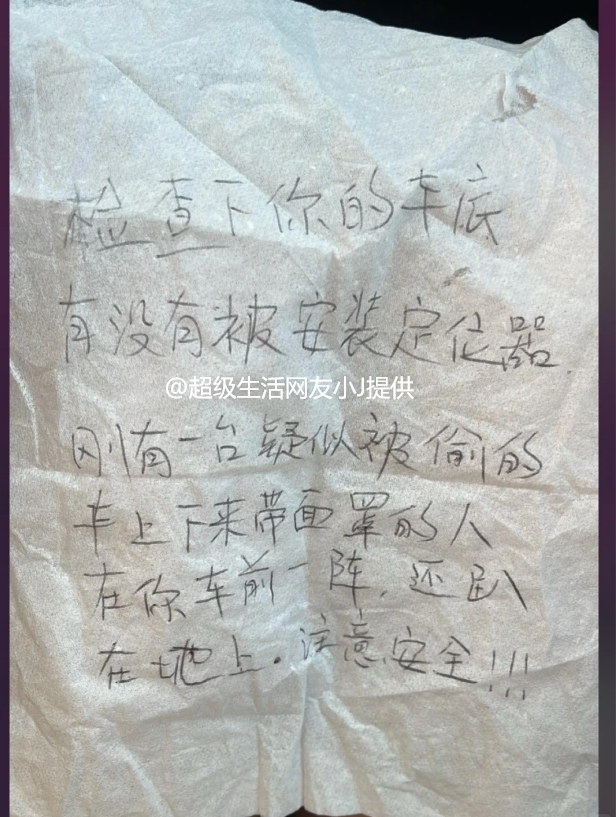 检查下你的车底
有没有被安装定位器.
@超级生活网友小J提供
刚有一台疑似被偷的
车上下来带面罩的人
在你车前一阵,还趴
在地上.注意安全!!!